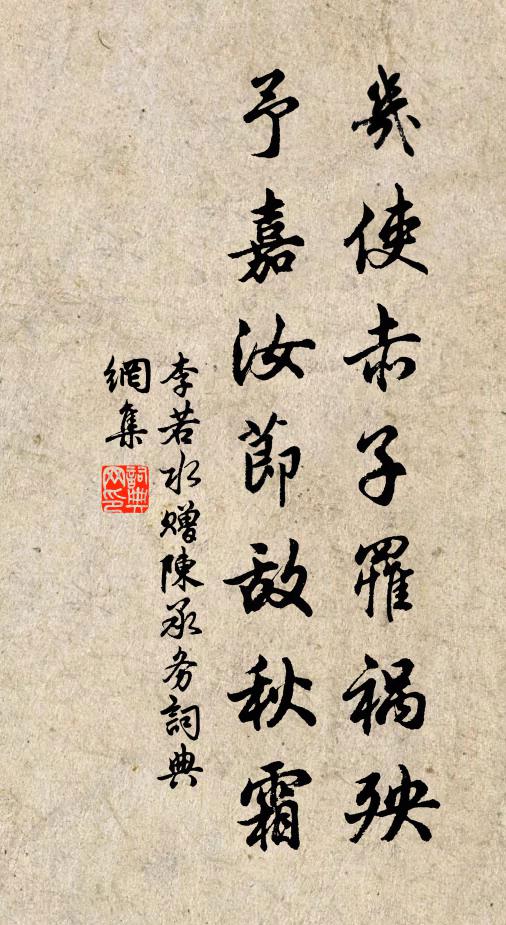 幾使赤子罹禍殃
予嘉汝節敵秋霜
李若水贈陳承务詞典
網集
詞典網印